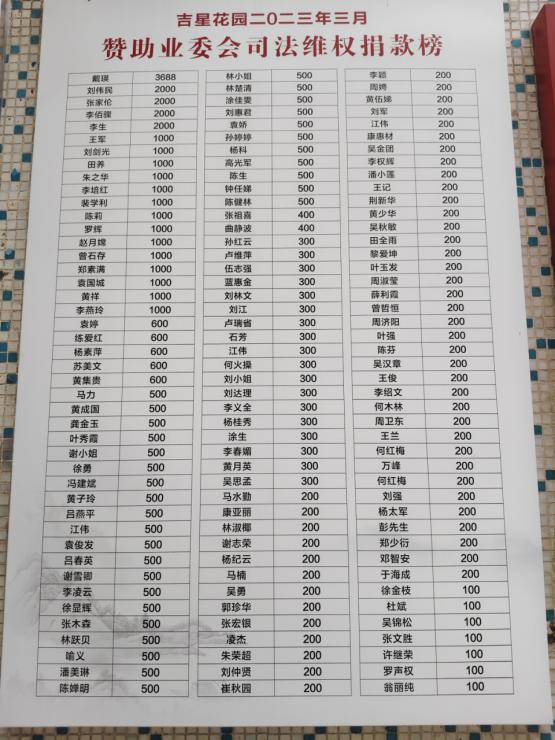 吉星花园二〇二三年三月
赞助业委会司法维权捐款榜
戴瑛 3688
刘伟民 2000
张家伦 2000
李佰骒 2000
李生 2000
王军 1000
刘剑光 1000
田养 1000
朱之华 1000
李培红 1000
裴学利 1000
陈莉 1000
罗辉 1000
赵月嫦 1000
曾石存 1000
郑素满 1000
袁国城 1000
黄祥 1000
李燕玲 1000
袁婷 600
练爱红 600
杨素萍 600
苏美文 600
黄集贵 600
马力 500
黄成国 500
龚金玉 500
叶秀霞 500
谢小姐 500
徐勇 500
冯建斌 500
黄子玲 500
吕燕平 500
江伟 500
袁俊发 500
吕春英 500
谢雪卿 500
李凌云 500
徐显辉 500
张木森 500
林跃贝 500
喻义 500
潘美琳 500
陈婵明 500
林小姐 500
林楚清 500
涂佳雯 500
刘惠君 500
袁娇 500
孙婷婷 500
杨科 500
高光军 500
陈生 500
钟任娣 500
陈健林 500
张祖喜 400
曲静波 400
孙红云 300
卢维萍 300
伍志强 300
蓝惠金 300
刘林文 300
刘江 300
卢瑞省 300
石芳 300
江伟 300
何火操 300
刘小姐 300
刘达理 300
李义全 300
杨桂秀 300
涂生 300
李春媚 300
黄月英 300
吴思孟 300
马水勤 200
康亚丽 200
林淑椰 200
谢志荣 200
杨纪云 200
马楠 200
吴勇 200
郭珍华 200
张宏银 200
凌杰 200
朱荣超 200
刘仲贤 200
崔秋园 200
李颖 200
周娉 200
黄伍娣 200
刘军 200
江伟 200
康惠材 200
吴金团 200
李权辉 200
潘小莲 200
王记 200
荆新华 200
黄少华 200
吴秋敏 200
田全雨 200
黎爱坤 200
叶玉发 200
周淑莹 200
薛利霞 200
曾哲恒 200
周济阳 200
叶强 200
陈芬 200
吴汉章 200
王俊 200
李绍文 200
何木林 200
周卫东 200
王兰 200
何红梅 200
万峰 200
何红梅 200
刘强 200
杨太军 200
彭先生 200
郑少衍 200
邓智安 200
于海成 200
徐金枝 100
杜斌 100
吴锦松 100
张文胜 100
许继荣 100
罗声权 100
翁丽纯 100